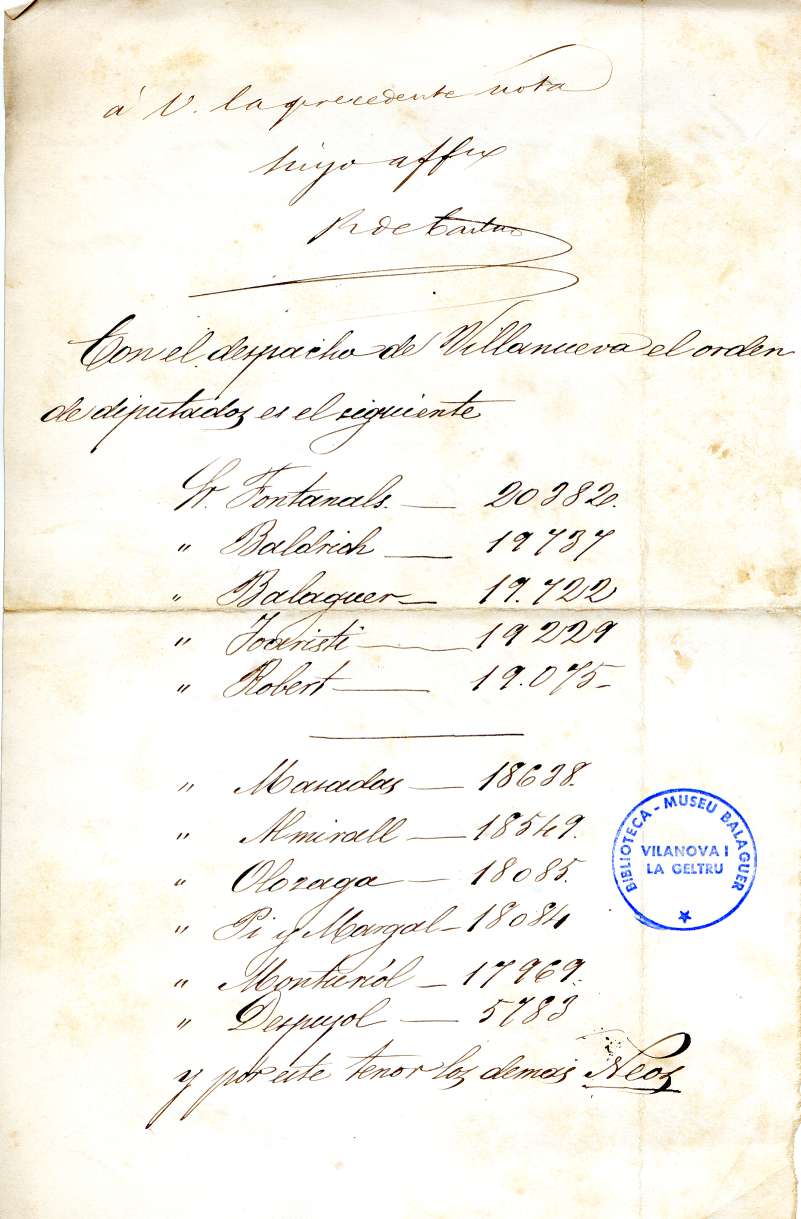 á V. la precedente nota
suyo affmo
R de
Con el despacho de Villanueva el orden
de diputados es el siguiente
Sr. Fontanals. — 20382.
" Baldrich — 19737
" Balaguer — 19.722
" Joaristi — 19229
" Robert — 19.075 -
" Masadas — 18638.
" Almirall — 18549.
" Olozaga — 18085.
" Pi y Margal - 18084
" Monturiól — 17969.
" Despujol — 5783
y por este tenor los demás Neos
BIBLIOTECA - MUSEU BALAGUER
VILANOVA I
LA GELTRU